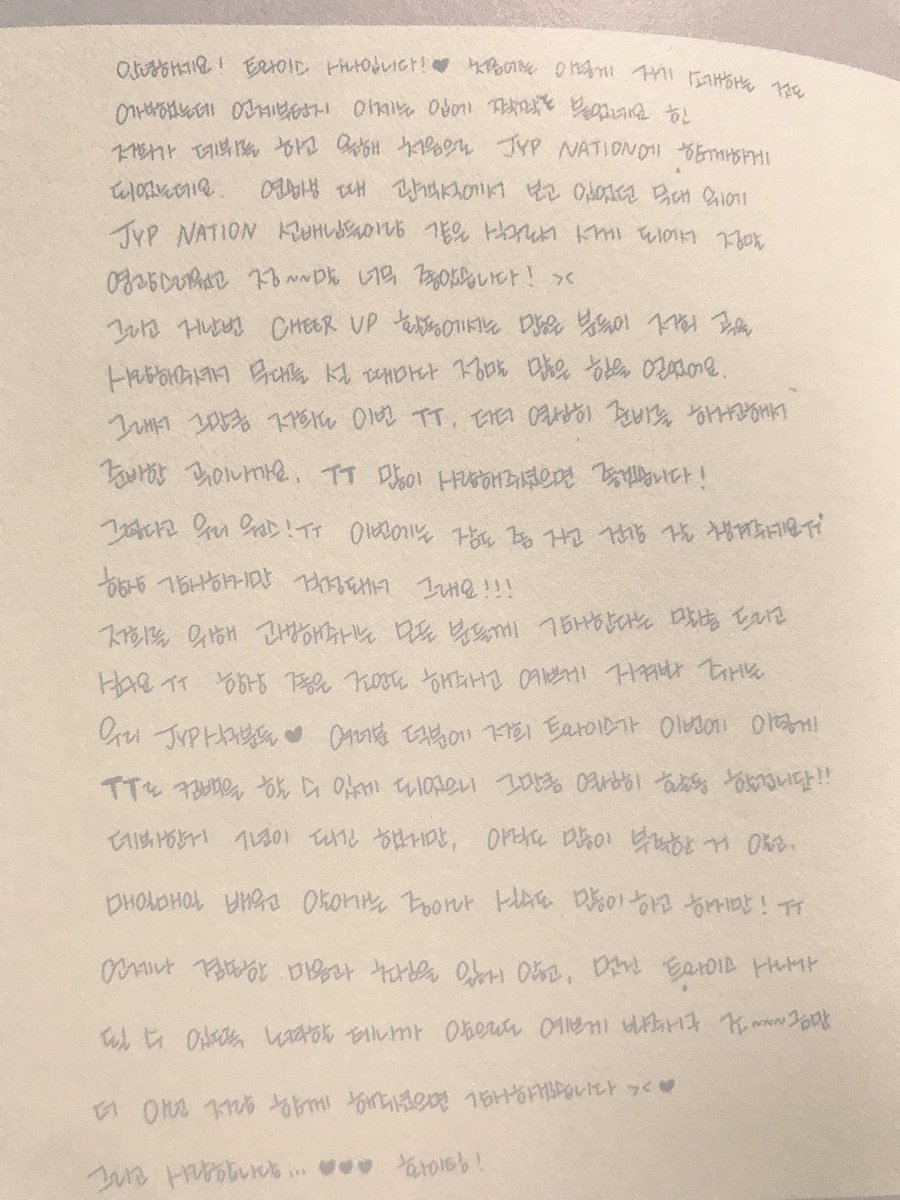 안녕하세요! 트와이스 사나입니다!♥ 처음에는 이렇게 자기 소개하는 것도
어색했는데 언제부턴지 이제는 입에 딱딱 붙었네요 힌
저희가 데뷔를 하고 올해 처음으로 JYP NATION에 함께하게
되었는데요. 연습생 때 관객석에서 보고 있었던 무대 위에
JYP NATION 선배님들이랑 같은 식구로서 서게 되어서 정말
영광스러웠고 정~~말 너무 좋았습니다! ><
그리고 지난번 CHEER UP 활동에서는 많은 분들이 저희 곡을
사랑해주셔서 무대를 설 때마다 정말 많은 힘을 얻었어요.
그래서 그만큼 저희도 이번 TT, 더더 열심히 준비를 하자고해서
준비한 곡이니까요, TT 많이 사랑해주셨으면 좋겠습니다!
그렇다고 우리 원스!ㅠㅠ 이번에는 잠도 좀 자고 건강 잘 챙겨주세요ㅠ
항상 감사하지만 걱정돼서 그래요!!!
저희를 위해 고생해주시는 모든 분들께 감사한다는 말씀 드리고
싶어요 ㅠㅠ 항상 좋은 조언도 해주시고 예쁘게 지켜봐 주시는
우리 JYP식구분들♥ 여러분 덕분에 저희 트와이스가 이번에 이렇게
TT로 컴백을 할 수 있게 되었으니 그만큼 열심히 활동 할겁니닷!!
데뷔한지 1년이 되긴 했지만, 아직도 많이 부족한 거 알고,
매일매일 배우고 알아가는 중이라 실수도 많이하고 하지만! ㅠㅠ
언제나 겸손한 마음과 초심을 잃지 않고, 멋진 트와이스 사나가
될 수 있도록 노력할 테니까 앞으로도 예쁘게 봐주시구 조~~~금만
더 아던 저랑 함께 해주셨으면 감사하겠습니다 ><♥
그리고 사랑합니당...♥♥♥ 화이팅!